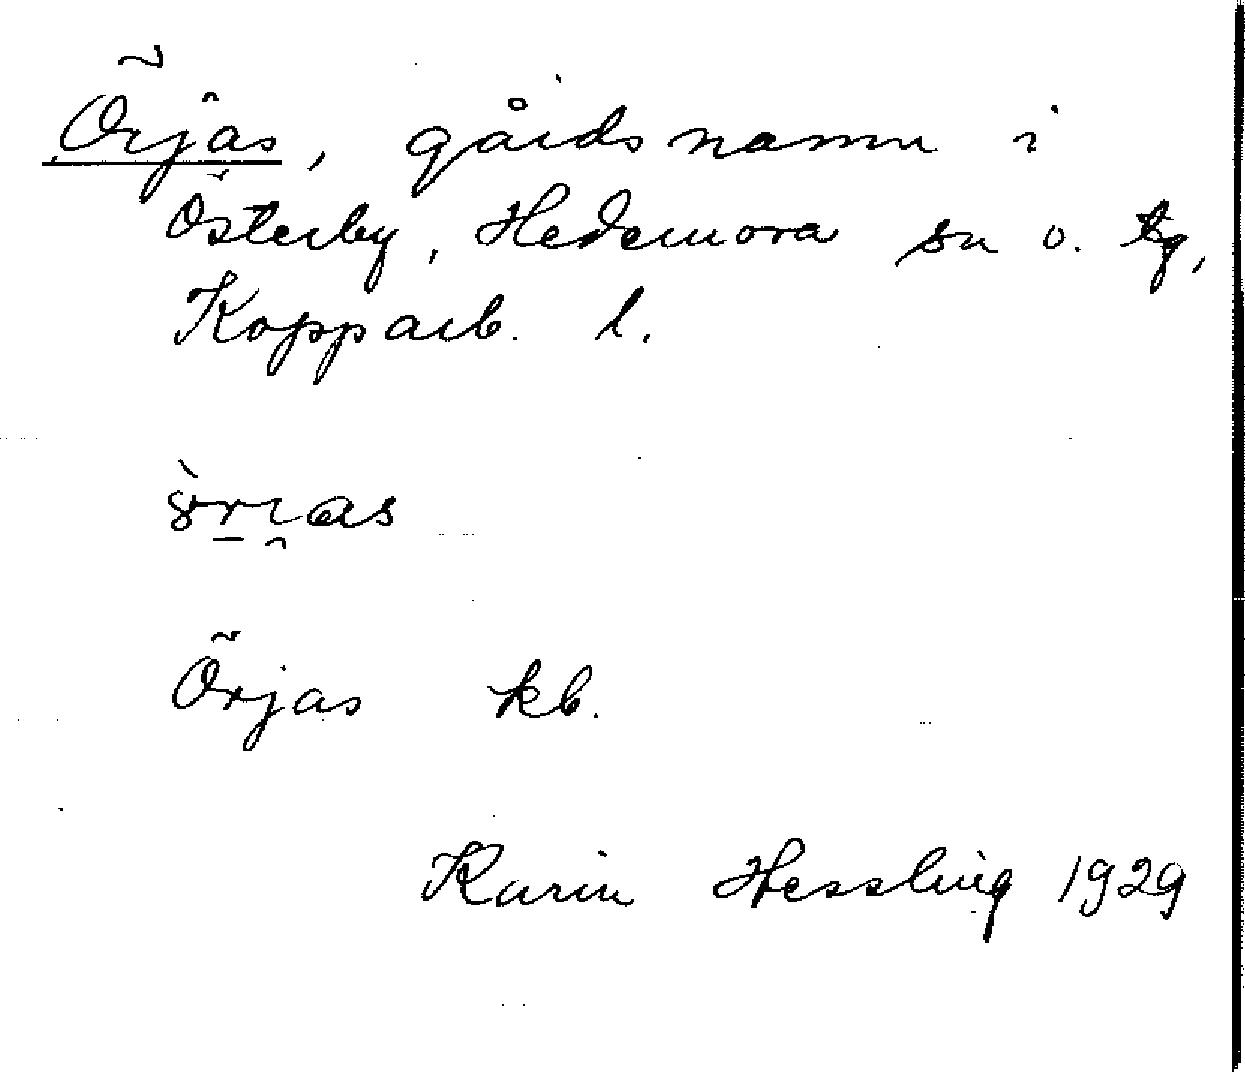 Örjas, gårdsnamn i
Österby, Hedemora sn o. tg,
Kopparb. l.
Örjas kb.
Karin Hessling 1929